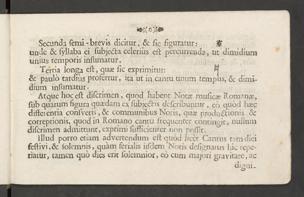 Secunda semi-brevis dicitur, & sic figuratur:
unde & syllaba ei subjecta celerius est percurrenda, ut dimidium
unius temporis insumatur.
Tertia longa est, quæ sic exprimitur:
& paulò tardius profertur, ita ut in cantu unum tempus, & dimi-
dium insumatur.
Atque hoc est discrimen, quod habent Notæ musicæ Romanæ,
sub quarum figura quædam ex subjectis describuntur, eò quòd hæc
differentia conserti, & communibus Notis, quæ productionis &
correptionis, quod in Romano cantu frequenter contingit, nullum
discrimen admittunt, exprimi sufficienter non possit.
Illud porro etiam advertendum est quòd licet Cantus tam diei
festivi, & solemnis, quàm ferialis iisdem Notis designatus hîc repe-
riatur, tamen quò dies erit solemnior, eò cum majori gravitate, ac
digni-